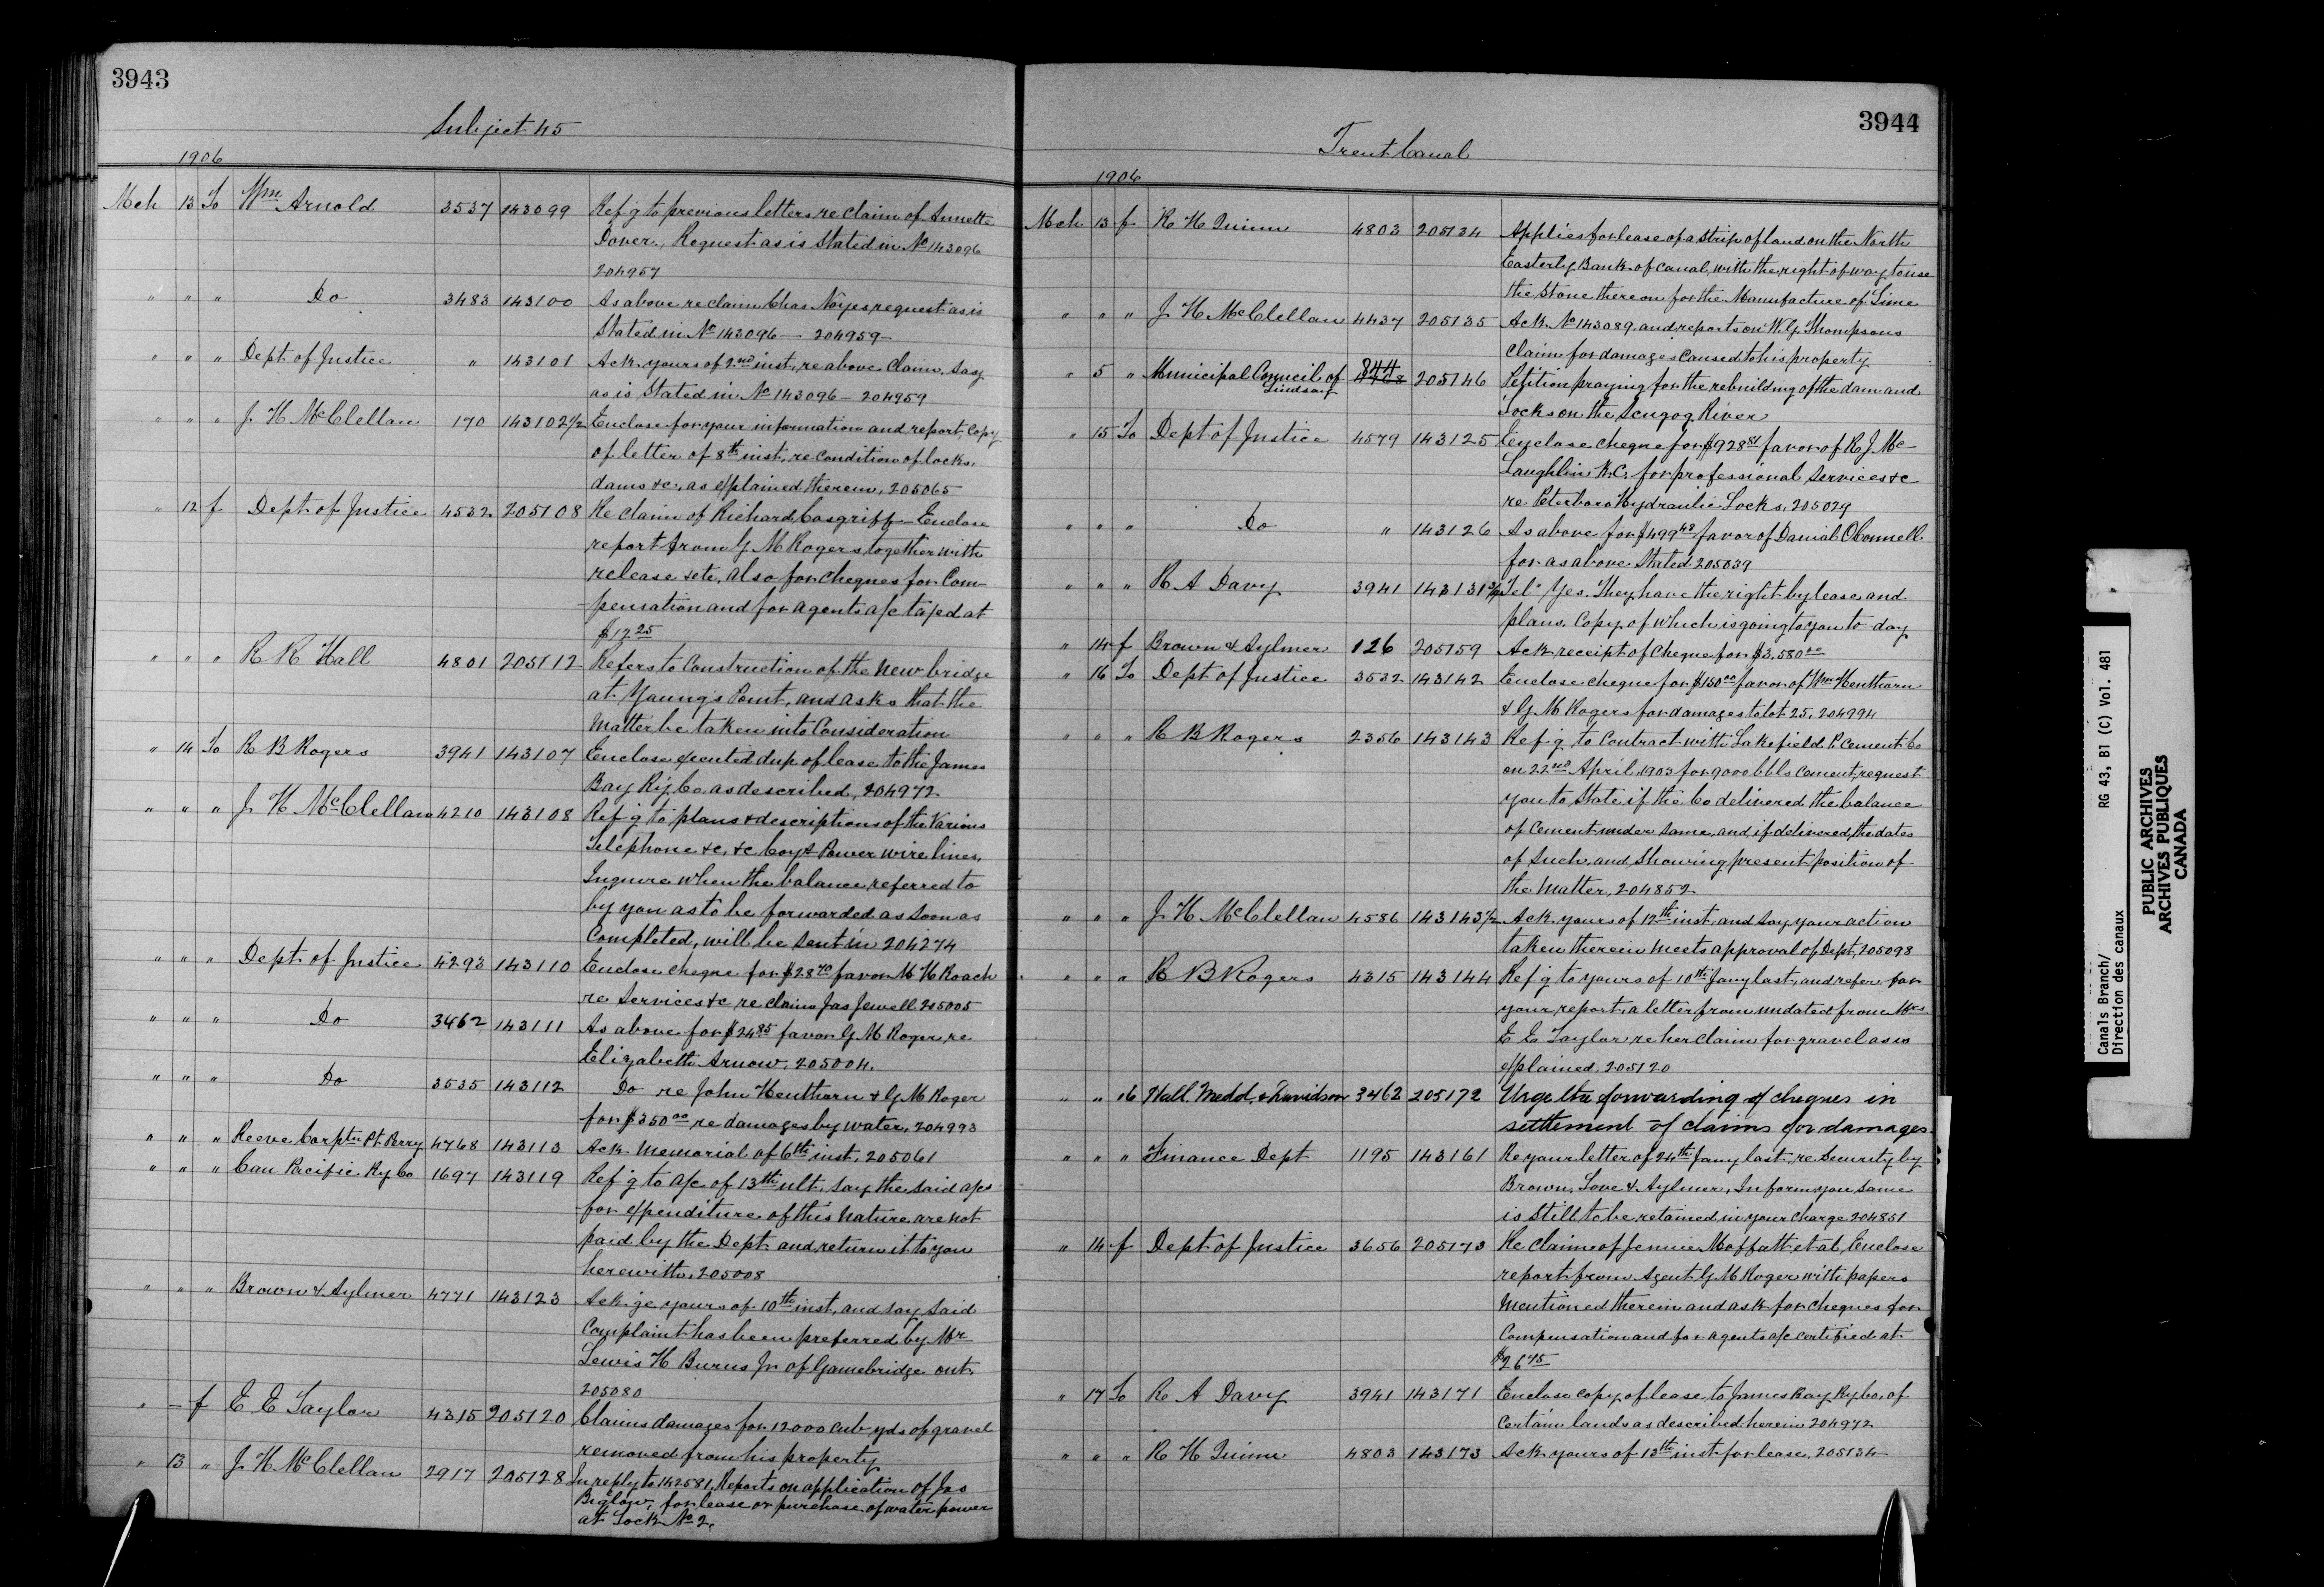 3943
Subject 45
1906
Mch 13 To Wm Arnold 3537 143099 Ref'g to previous letters re claim of Annette
Dover, Request as is Stated in No 143096
204957
" " " Do 3483 143100 As above re claim Chas Noyes request as is
Stated in No 143096 — 204959
" " " Dept. of Justice " 143101 Ack. yours of 2nd inst, re above Claim, Say
as is Stated in No 143096 — 204959
" " " J. H McClellan 170 143102½ Enclose for your information and report, Copy
of letter of 8th inst, re Condition of locks,
dams &c., as explained therein, 205065
" 12 f Dept. of Justice 4532 205108 Re claim of Richard Cosgriff — Enclose
report from G M Rogers together with
release &etc, also for cheques for Com-
pensation and for agents a/c taxed at
$17.25
" " " R R Hall 4801 205112 Refers to Construction of the New bridge
at Young's Point, and asks that the
Matter be taken into Consideration
" 14 To R B Rogers 3941 143107 Enclose executed dup of lease to the James
Bay Ry Co as described, 204972
" " " J. H McClellan 4210 143108 Ref'g to plans & descriptions of the Various
Telephone &c, &c Coys Power wire lines,
Inquire when the balance referred to
by you as to be forwarded as soon as
Completed, will be Sent in 204274
" " " Dept. of Justice 4293 143110 Enclose cheque for $28.70 favor M H Roach
re Services &c re claim Jas Jewell 205005
" " " Do 3462 143111 As above for $24.85 favor G M Roger, re
Elizabeth Arnow, 205004.
" " " Do 3535 143112 Do re John Henthorn & G M Roger
for $350.00 re damages by water, 204993
" " " Reeve Corp'tn Pt. Perry 4768 143113 Ack Memorial of 6th inst, 205061
" " " Can Pacific Ry Co 1697 143119 Ref'g to a/c of 13th ult, say the said a/cs
for expenditure of this Nature are not
paid by the Dept. and return it to you
herewith, 205008
" " " Brown & Aylmer 4771 143123 Ack'ge yours of 10th inst, and say said
Complaint has been preferred by Mr
Lewis H Burns Jr of Gamebridge Ont.
205080
" – f E E Taylor 4315 205120 Claims damages for 12000 cub yds of gravel
removed from his property
" 13 " J. H McClellan 2917 205128 In reply to 142581. Reports on application of Jas
Biglow, for lease or purchase of water power
at Lock No 2.
3944
Trent Canal
1906
Mch 13 f R H Quinn 4803 205134 Applies for lease of a Strip of land on the North
Easterly Bank of Canal, with the right of way to use
the Stone thereon for the Manufacture of Lime
" " " J. H McClellan 4437 205135 Ack. No 143089, and reports on W. G. Thompsons
Claim for damages Caused to his property
" 5 " Municipal Council of 844 205146 Petition praying for the rebuilding of the dam and
Lindsay
Locks on the Scugog River
" 15 To Dept of Justice 4579 143125 Enclose cheque for $928.81 favor of R J. Mc-
Laughlin K.C. for professional Services &c
re Peterboro Hydraulic Locks, 205029
" " " Do " 143126 As above for $499.48 favor of Danial OConnell
for as above Stated 205039
" " " R A Davy 3941 143131½ Tel. Yes. They have the right by lease and
plans, Copy of which is going to you to-day
" 14 f Brown & Aylmer 126 205159 Ack receipt of Cheque for $3,580.00
" 16 To Dept of Justice 3532 143142 Enclose cheque for $150.00 favor of Wm Henthorn
& G M Rogers for damages to lot 25, 204994
" " " R B Rogers 2356 143143 Ref'g to Contract with Lakefield P. Cement Co
on 22nd April, 1903 for 9000 bbls cement, request
you to State if the Co delivered the balance
of Cement under Same, and, if delivered, the dates
of Such, and Showing present position of
the Matter, 204852
" " " J. H McClellan 4586 143143½ Ack. yours of 12th inst. and say, your action
taken therein meets approval of Dept, 205098
" " " R B Rogers 4315 143144 Ref'g to yours of 10th Jany last, and refer for
your report, a letter from undated from Mrs
E E Taylor re her Claim for gravel as is
explained, 205120
" " 16 Hall Medd & Davidson 3462 205172 Urge the forwarding of cheques in
settlement of claims for damages.
" " " Finance Dept 1195 143161 Re your letter of 24th Jany last, re Security by
Brown, Love & Aylmer, Inform you same
is Still to be retained in your Charge 204851
" 14 f Dept of Justice 3656 205173 Re Claim of Jennie Moffatt et al, Enclose
report from Agent G M Roger with papers
Mentioned therein and ask for Cheques for
Compensation and for agents a/c certified at
$26.75
" 17 To R A Davy 3941 143171 Enclose copy of lease to James Bay Ry Co. of
Certain lands as described herein 204972
" " " R H Quinn 4803 143173 Ack yours of 13th inst for lease, 205134
Canals Branch/
Direction des canaux
RG 43, B1 (C) Vol. 481
PUBLIC ARCHIVES
ARCHIVES PUBLIQUES
CANADA